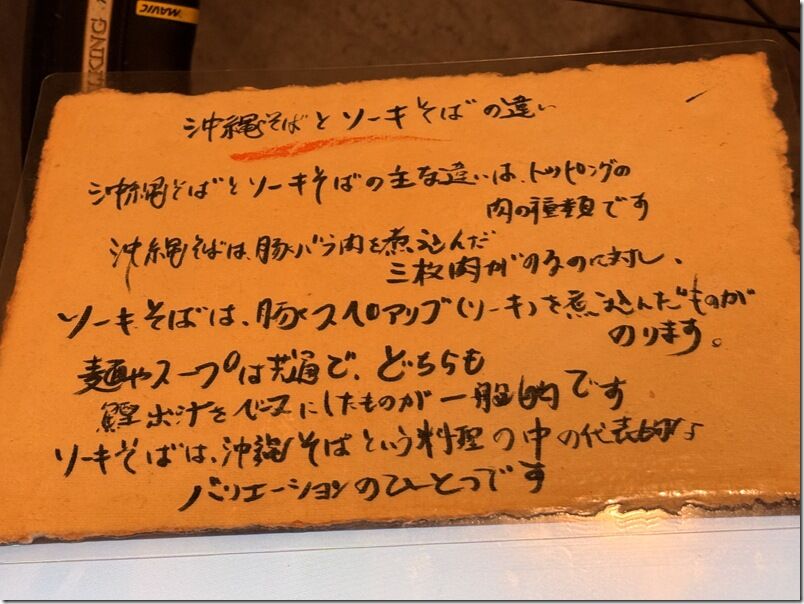 MAVIC
LKING
沖縄そばとソーキそばの違い
沖縄そばとソーキそばの主な違いは、トッピングの
肉の種類です
沖縄そばは、豚バラ肉を煮込んだ
三枚肉がのるのに対し、
ソーキそばは、豚スペアリブ(ソーキ)を煮込んだものが
のります。
麺やスープは共通で、どちらも
鰹出汁をベースにしたものが一般的です
ソーキそばは、沖縄そばという料理の中の代表的な
バリエーションのひとつです